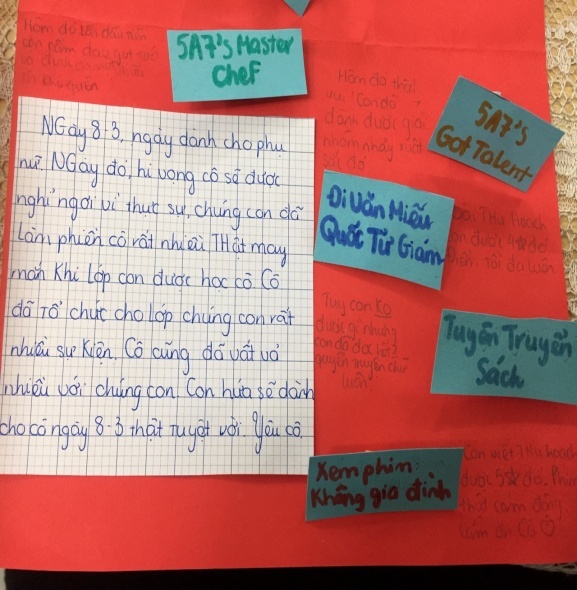 Hôm đó
con năm dao gọt
5A7's Master
Chef
Hôm đó
vui "Con đó
dành được giải
nhóm nhảy
5A7's
Got Talent
NGày 8-3, ngày dành cho phụ
nữ. NGày đó, hi vọng cô sẽ được
nghỉ ngơi vì thực sự, chúng con đã
Làm phiền cô rất nhiều THật may
mắn Khi Lớp con được học cô. Cô
đã Tổ chức cho lớp chúng con rất
nhiều sự Kiện. Cô cũng đã vất vả
nhiều với chúng con. Con hứa sẽ dành
cho cô ngày 8-3 thật Tuyệt vời. Yêu cô.
Đi Văn Miếu
Quốc Tử Giám
THu Hoạch
được
Tuy con Ko
được gì nhưng
con đã đọc hết 2
quyển truyện
luôn.
Tuyên Truyền
Sách
Xem phim:
Không gia đình
Con viết THu hoạch
được 5 đó. Phim
thật cảm động.
Cảm ơn Cô